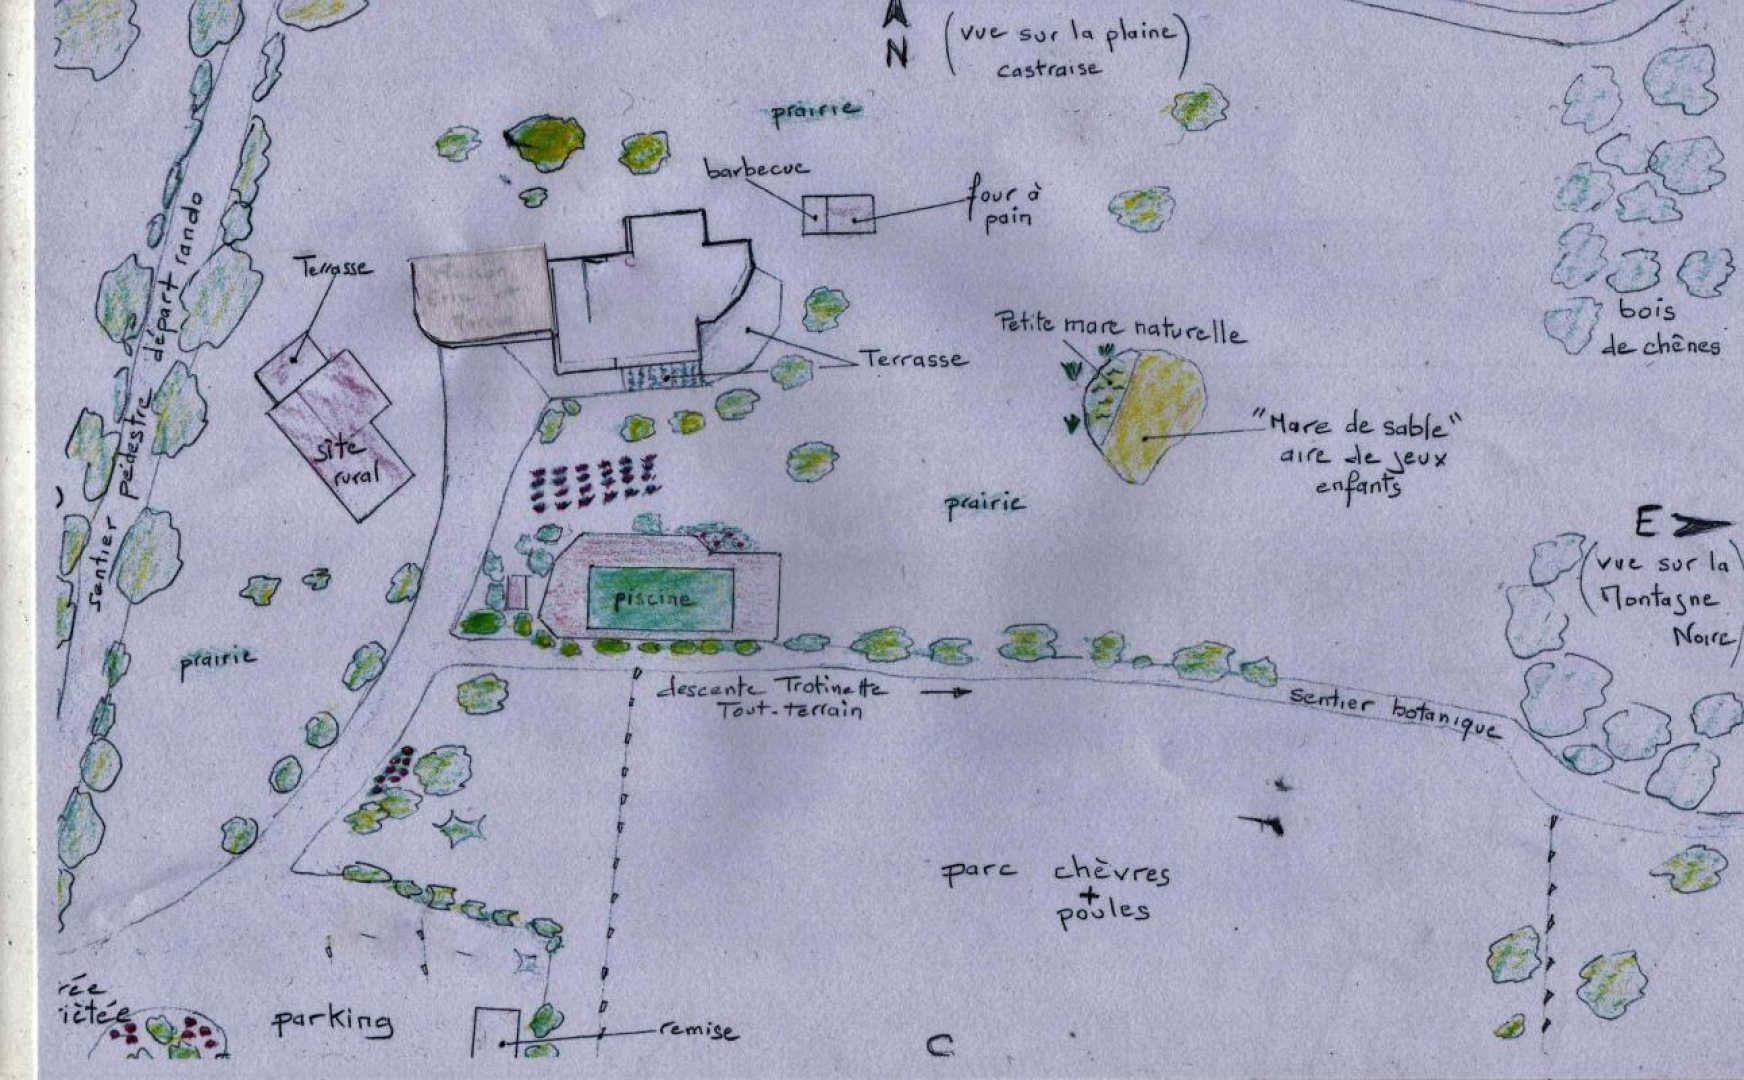 N
(vue sur la plaine
castraise)
prairie
barbecue
four à
pain
Terrasse
sentier pédestre départ rando
bois
de chênes
Petite mare naturelle
Terrasse
"Mare de sable"
aire de jeux
enfants
site
rural
prairie
E
(vue sur la
Montagne
Noire)
piscine
prairie
descente Trotinette
Tout-terrain
sentier botanique
parc chèvres
+
poules
rée
iètée
parking
remise
C